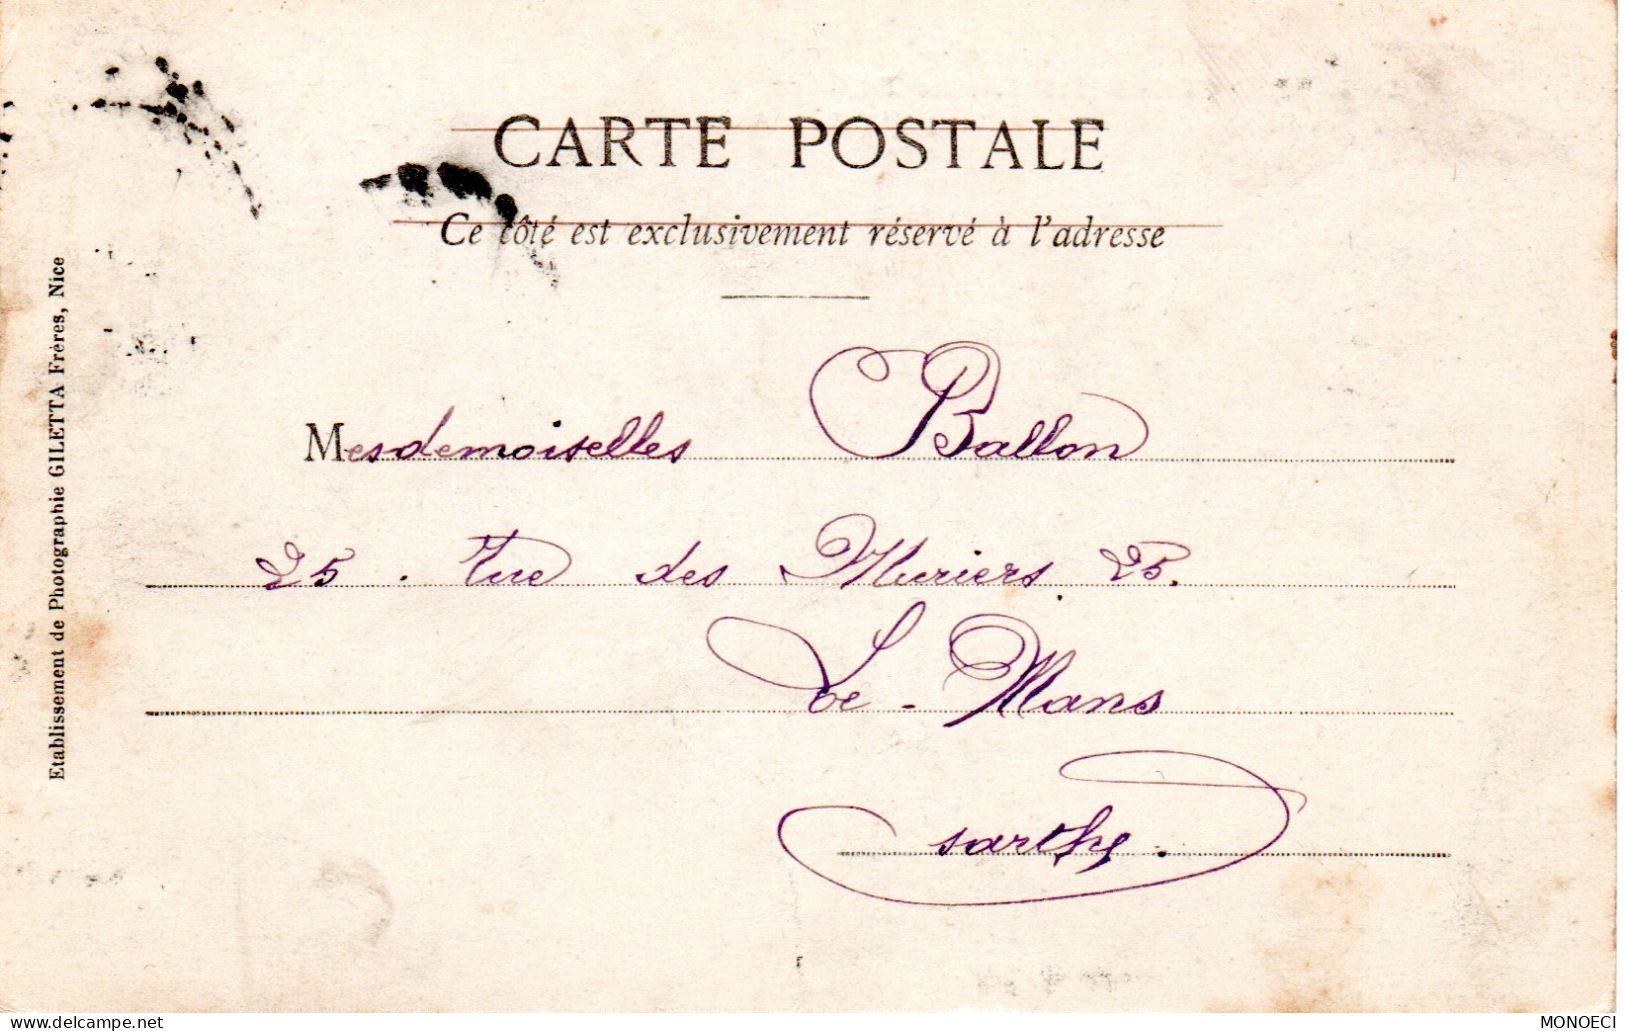 CARTE POSTALE
Ce côté est exclusivement réservé à l'adresse
Mesdemoiselles Ballon
25. rue des Muriers. 25.
Le - Mans
Sarthe.
Etablissement de Photographie GILETTA Frères, Nice
delcampe.net
MONOECI